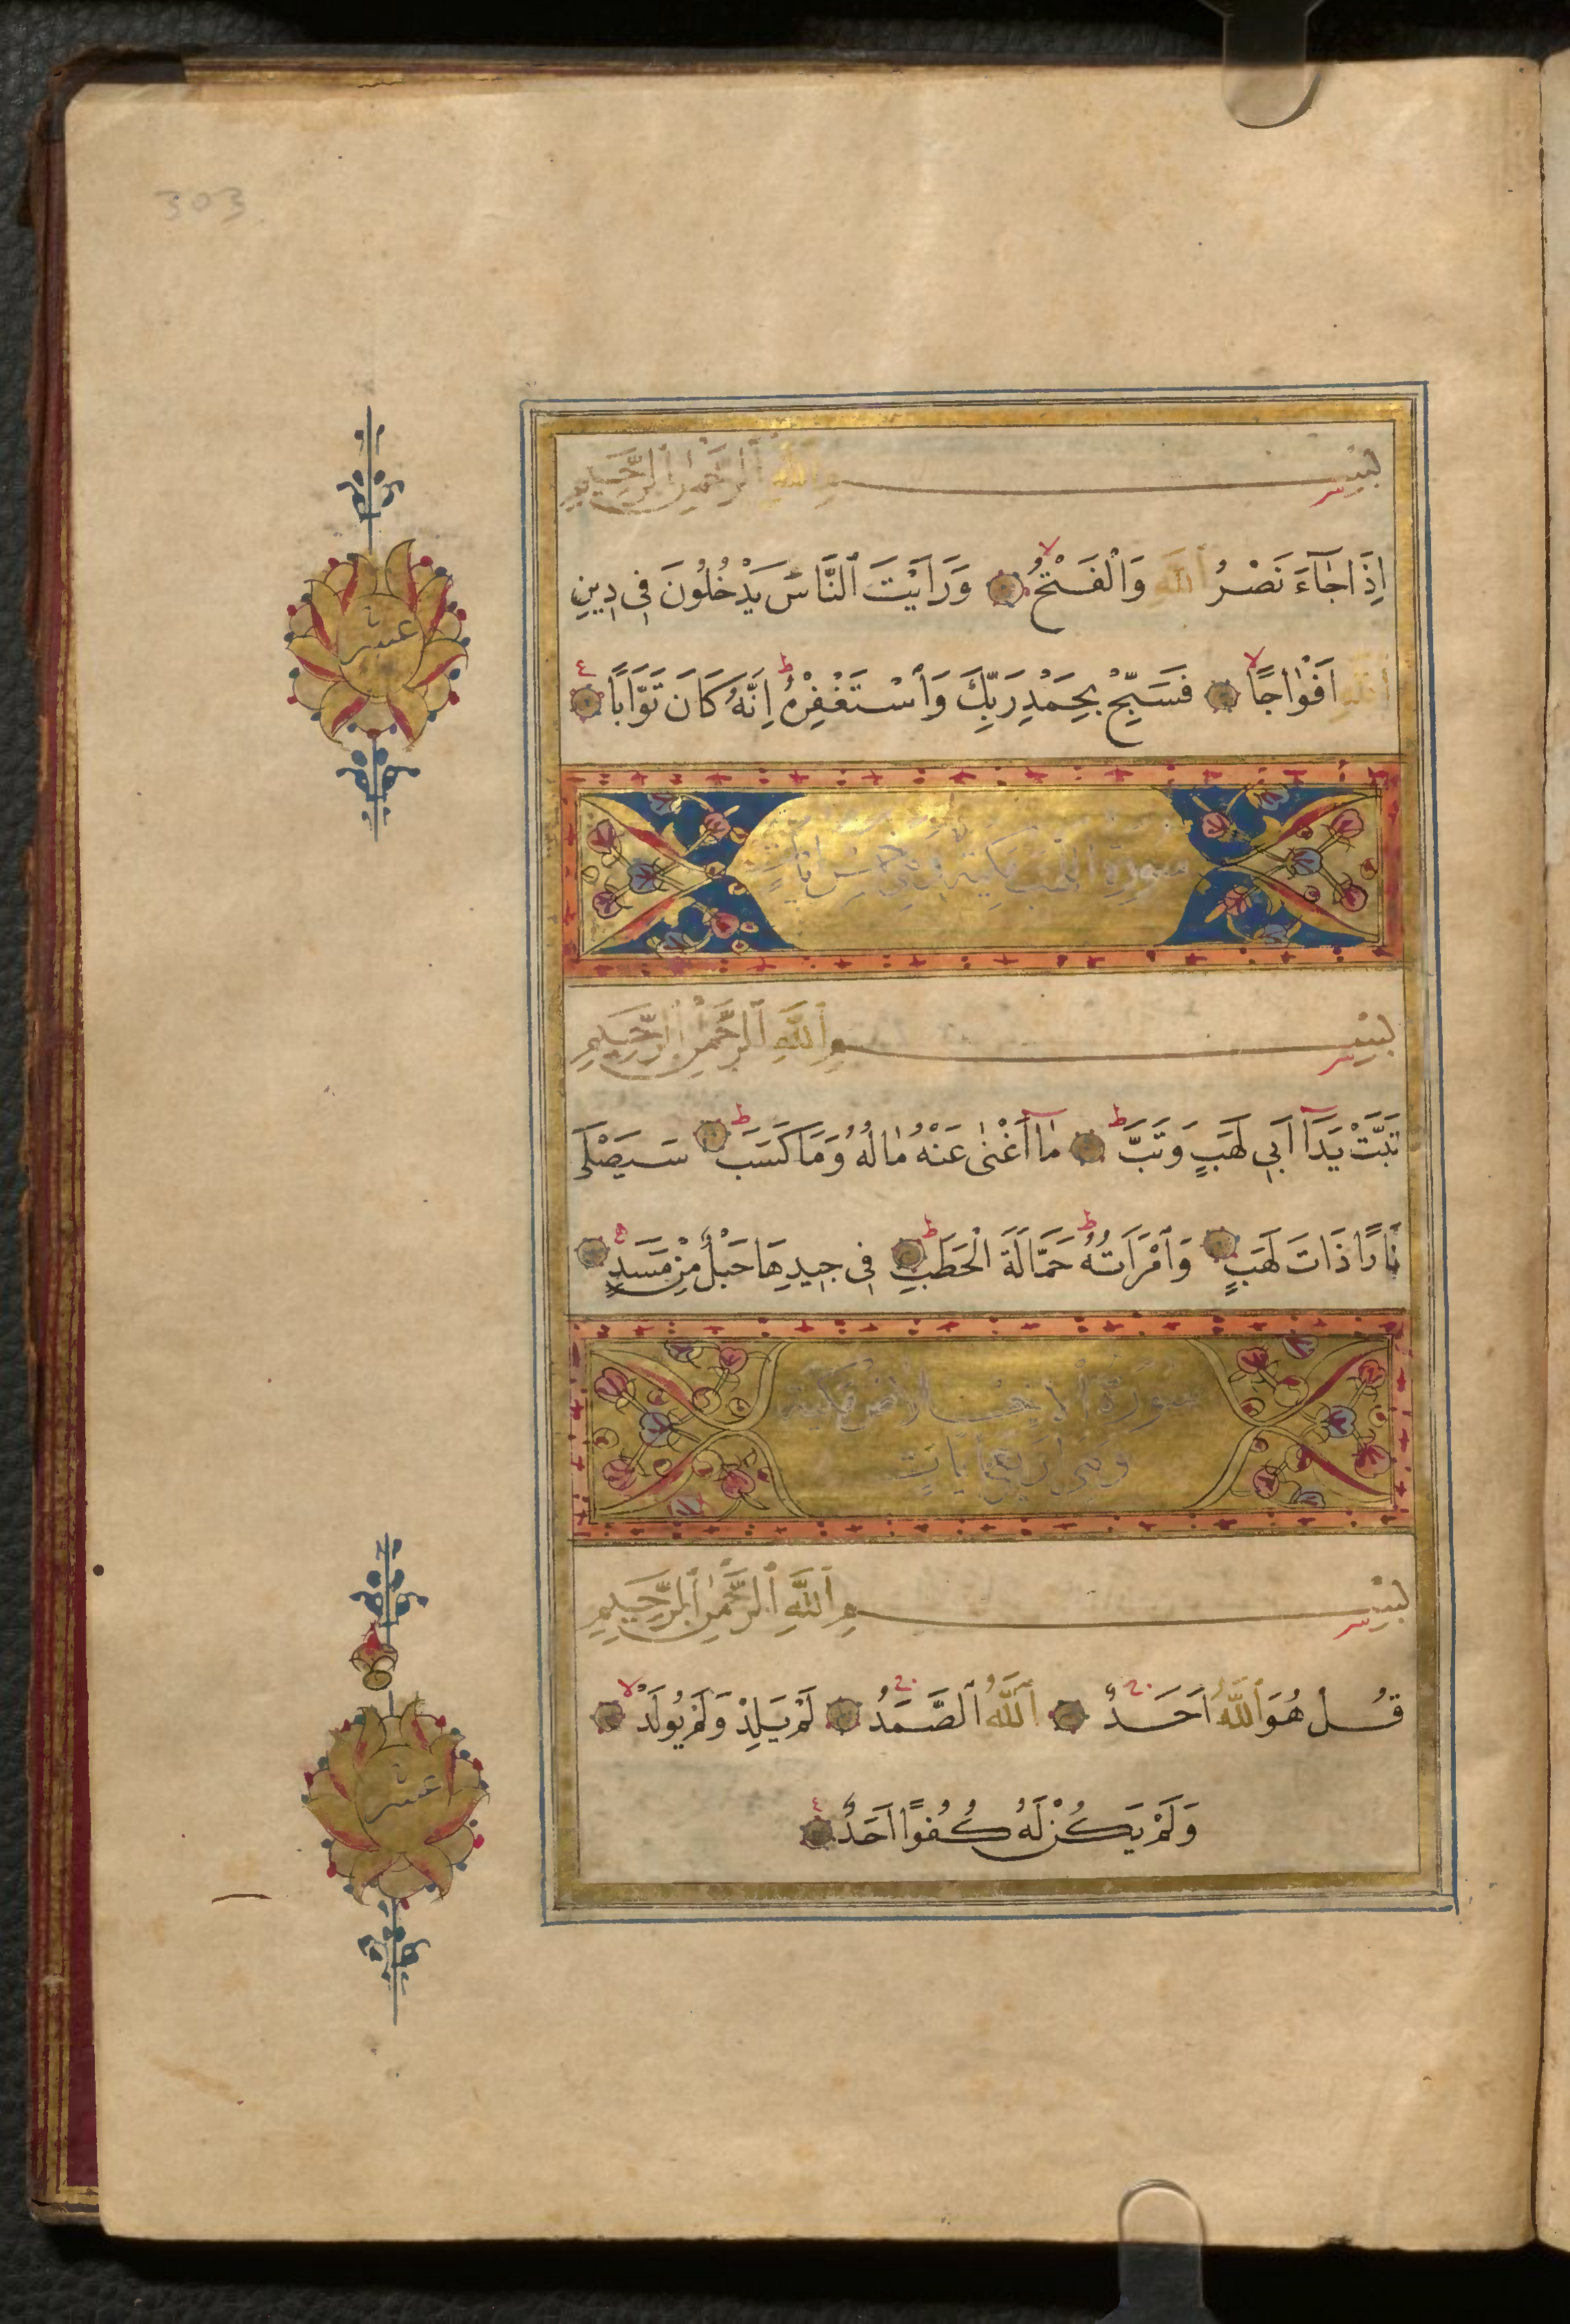 303
بِسْمِ ٱللَّهِ ٱلرَّحْمٰنِ ٱلرَّحِيمِ
اِذَا جَاءَ نَصْرُ ٱللَّهِ وَالْفَتْحُ وَرَاَيْتَ ٱلنَّاسَ يَدْخُلُونَ فِى دِينِ
ٱللَّهِ اَفْوَاجًا فَسَبِّحْ بِحَمْدِ رَبِّكَ وَٱسْتَغْفِرْهُ اِنَّهُ كَانَ تَوَّابًا
عشر
سورة اللهب مكية وهى خمس ايات
بِسْمِ ٱللَّهِ ٱلرَّحْمٰنِ ٱلرَّحِيمِ
تَبَّتْ يَدَٓا اَبِى لَهَبٍ وَتَبَّ مَٓا اَغْنٰى عَنْهُ مَالُهُ وَمَا كَسَبَ سَيَصْلَى
نَارًا ذَاتَ لَهَبٍ وَٱمْرَاَتُهُ حَمَّالَةَ الْحَطَبِ فِى جِيدِهَا حَبْلٌ مِنْ مَسَدٍ
سورة الاخلاص مكية
وهى اربع ايات
بِسْمِ ٱللَّهِ ٱلرَّحْمٰنِ ٱلرَّحِيمِ
قُلْ هُوَ ٱللَّهُ اَحَدٌ ٱللَّهُ ٱلصَّمَدُ لَمْ يَلِدْ وَلَمْ يُولَدْ
عشر
وَلَمْ يَكُنْ لَهُ كُفُوًا اَحَدٌ